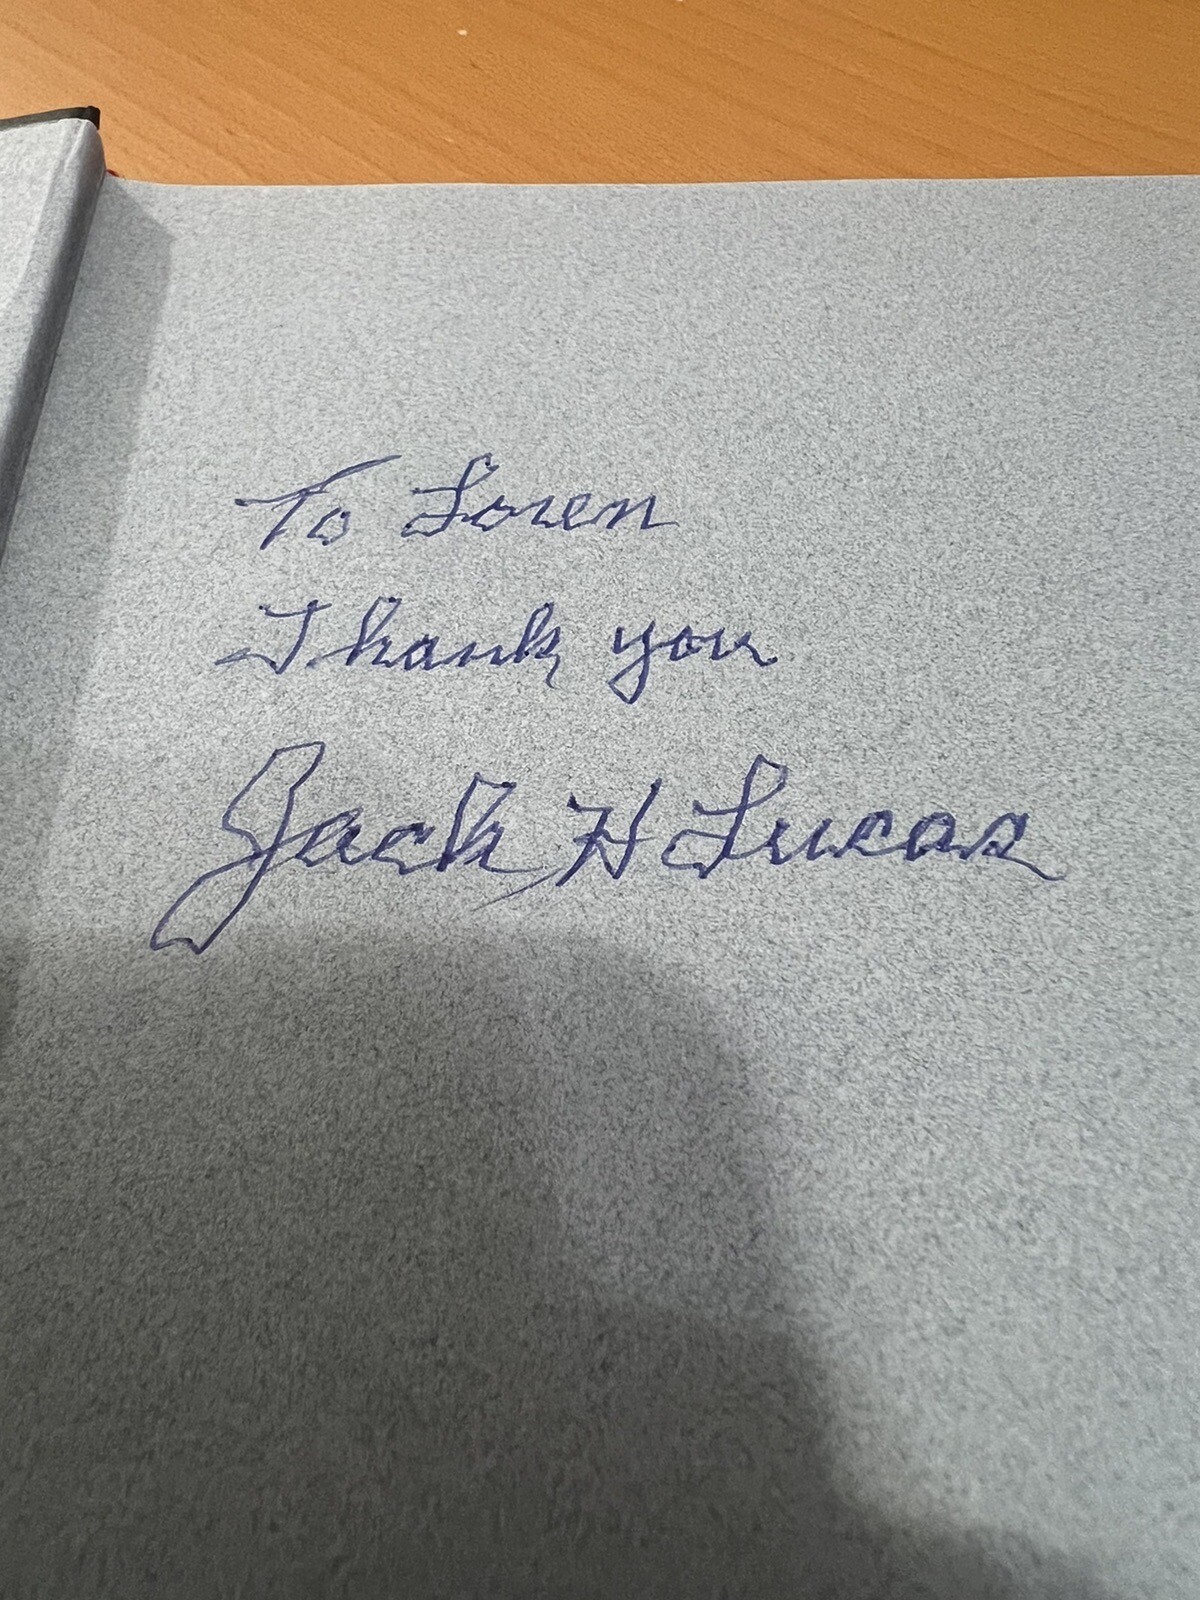 To Loren
Thank you
Jack H Lucas